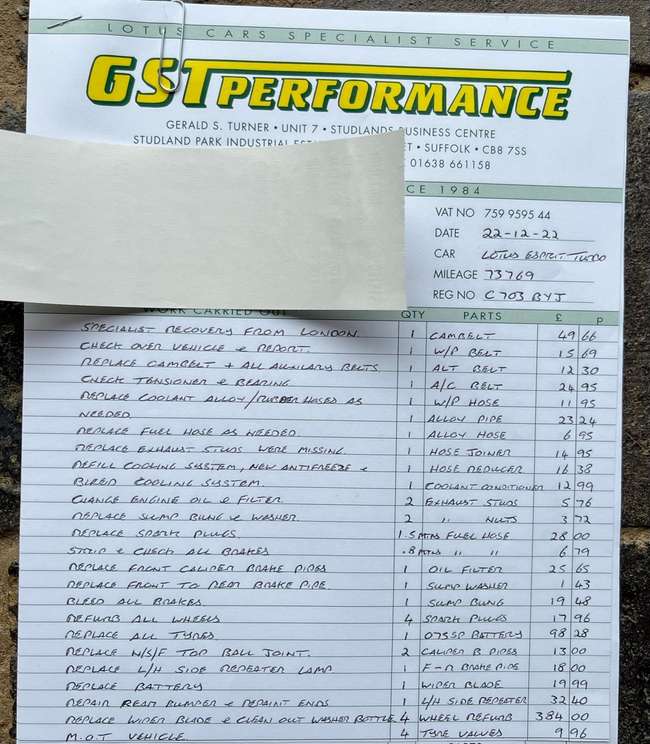 LOTUS CARS SPECIALIST SERVICE
GST PERFORMANCE
GERALD S. TURNER • UNIT 7 • STUDLANDS BUSINESS CENTRE
STUDLAND PARK INDUSTRIAL • SUFFOLK • CB8 7SS
01638 661158
1984
VAT NO 759 9595 44
DATE 22-12-22
CAR LOTUS ESPRIT TURBO
MILEAGE 73769
REG NO C703 BYJ
WORK CARRIED OUT QTY PARTS £ P
SPECIALIST RECOVERY FROM LONDON. 1 CAMBELT 49 66
CHECK OVER VEHICLE & REPORT. 1 W/P BELT 15 69
REPLACE CAMBELT + ALL AUXILARY BELTS 1 ALT BELT 12 30
CHECK TENSIONER & BEARING 1 A/C BELT 24 95
REPLACE COOLANT ALLOY/RUBBER HOSES AS 1 W/P HOSE 11 95
NEEDED 1 ALLOY PIPE 23 24
REPLACE FUEL HOSE AS NEEDED 1 ALLOY HOSE 6 95
REPLACE EXHAUST STUDS WERE MISSING 1 HOSE JOINER 14 95
REFILL COOLING SYSTEM, NEW ANTIFREEZE & 1 HOSE REDUCER 16 38
BLEED COOLING SYSTEM. 1 COOLANT CONDITIONER 12 99
CHANGE ENGINE OIL & FILTER. 2 EXHAUST STUDS 5 76
REPLACE SUMP BUNG & WASHER. 2 " NUTS 3 72
REPLACE SPARK PLUGS. 1.5 MTRS FUEL HOSE 28 00
STRIP & CHECK ALL BRAKES .8 MTRS " " 6 79
REPLACE FRONT CALIPER BRAKE PIPES 1 OIL FILTER 25 65
REPLACE FRONT TO REAR BRAKE PIPE. 1 SUMP WASHER 1 43
BLEED ALL BRAKES. 1 SUMP BUNG 19 48
REFURB ALL WHEELS 4 SPARK PLUGS 17 96
REPLACE ALL TYRES. 1 075SP BATTERY 98 28
REPLACE N/S/F TOP BALL JOINT. 2 CALIPER B PIPES 13 00
REPLACE L/H SIDE REPEATER LAMP 1 F-R BRAKE PIPE 18 00
REPLACE BATTERY 1 WIPER BLADE 19 99
REPAIR REAR BUMPER & REPAINT ENDS 1 L/H SIDE REPEATER 32 40
REPLACE WIPER BLADE & CLEAN OUT WASHER BOTTLE 4 WHEEL REFURB 384 00
M.O.T VEHICLE. 4 TYRE VALVES 9 96